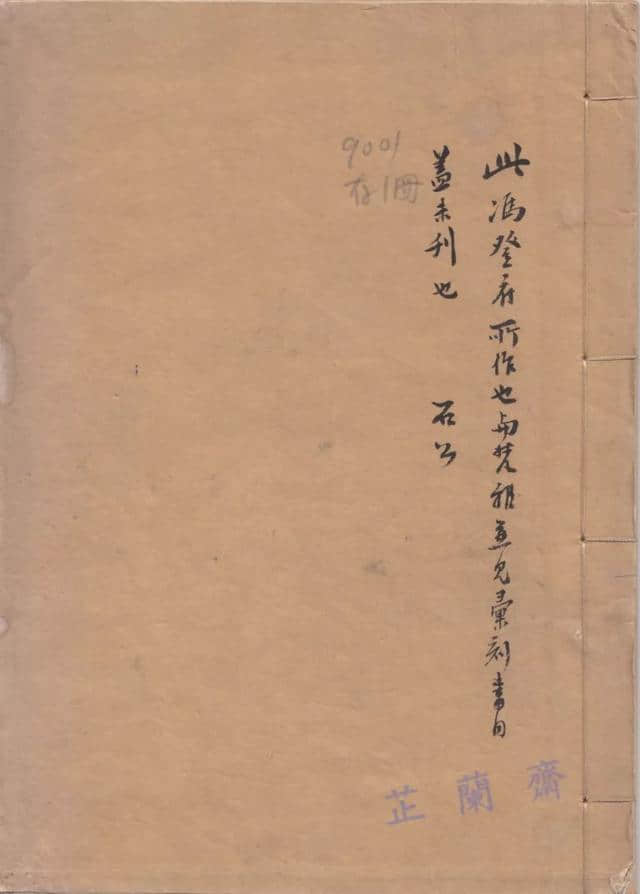 此馮登府所作也與梵雅並見彙刻書目
盖未刊也 石公
9001
存1冊
芷蘭齋